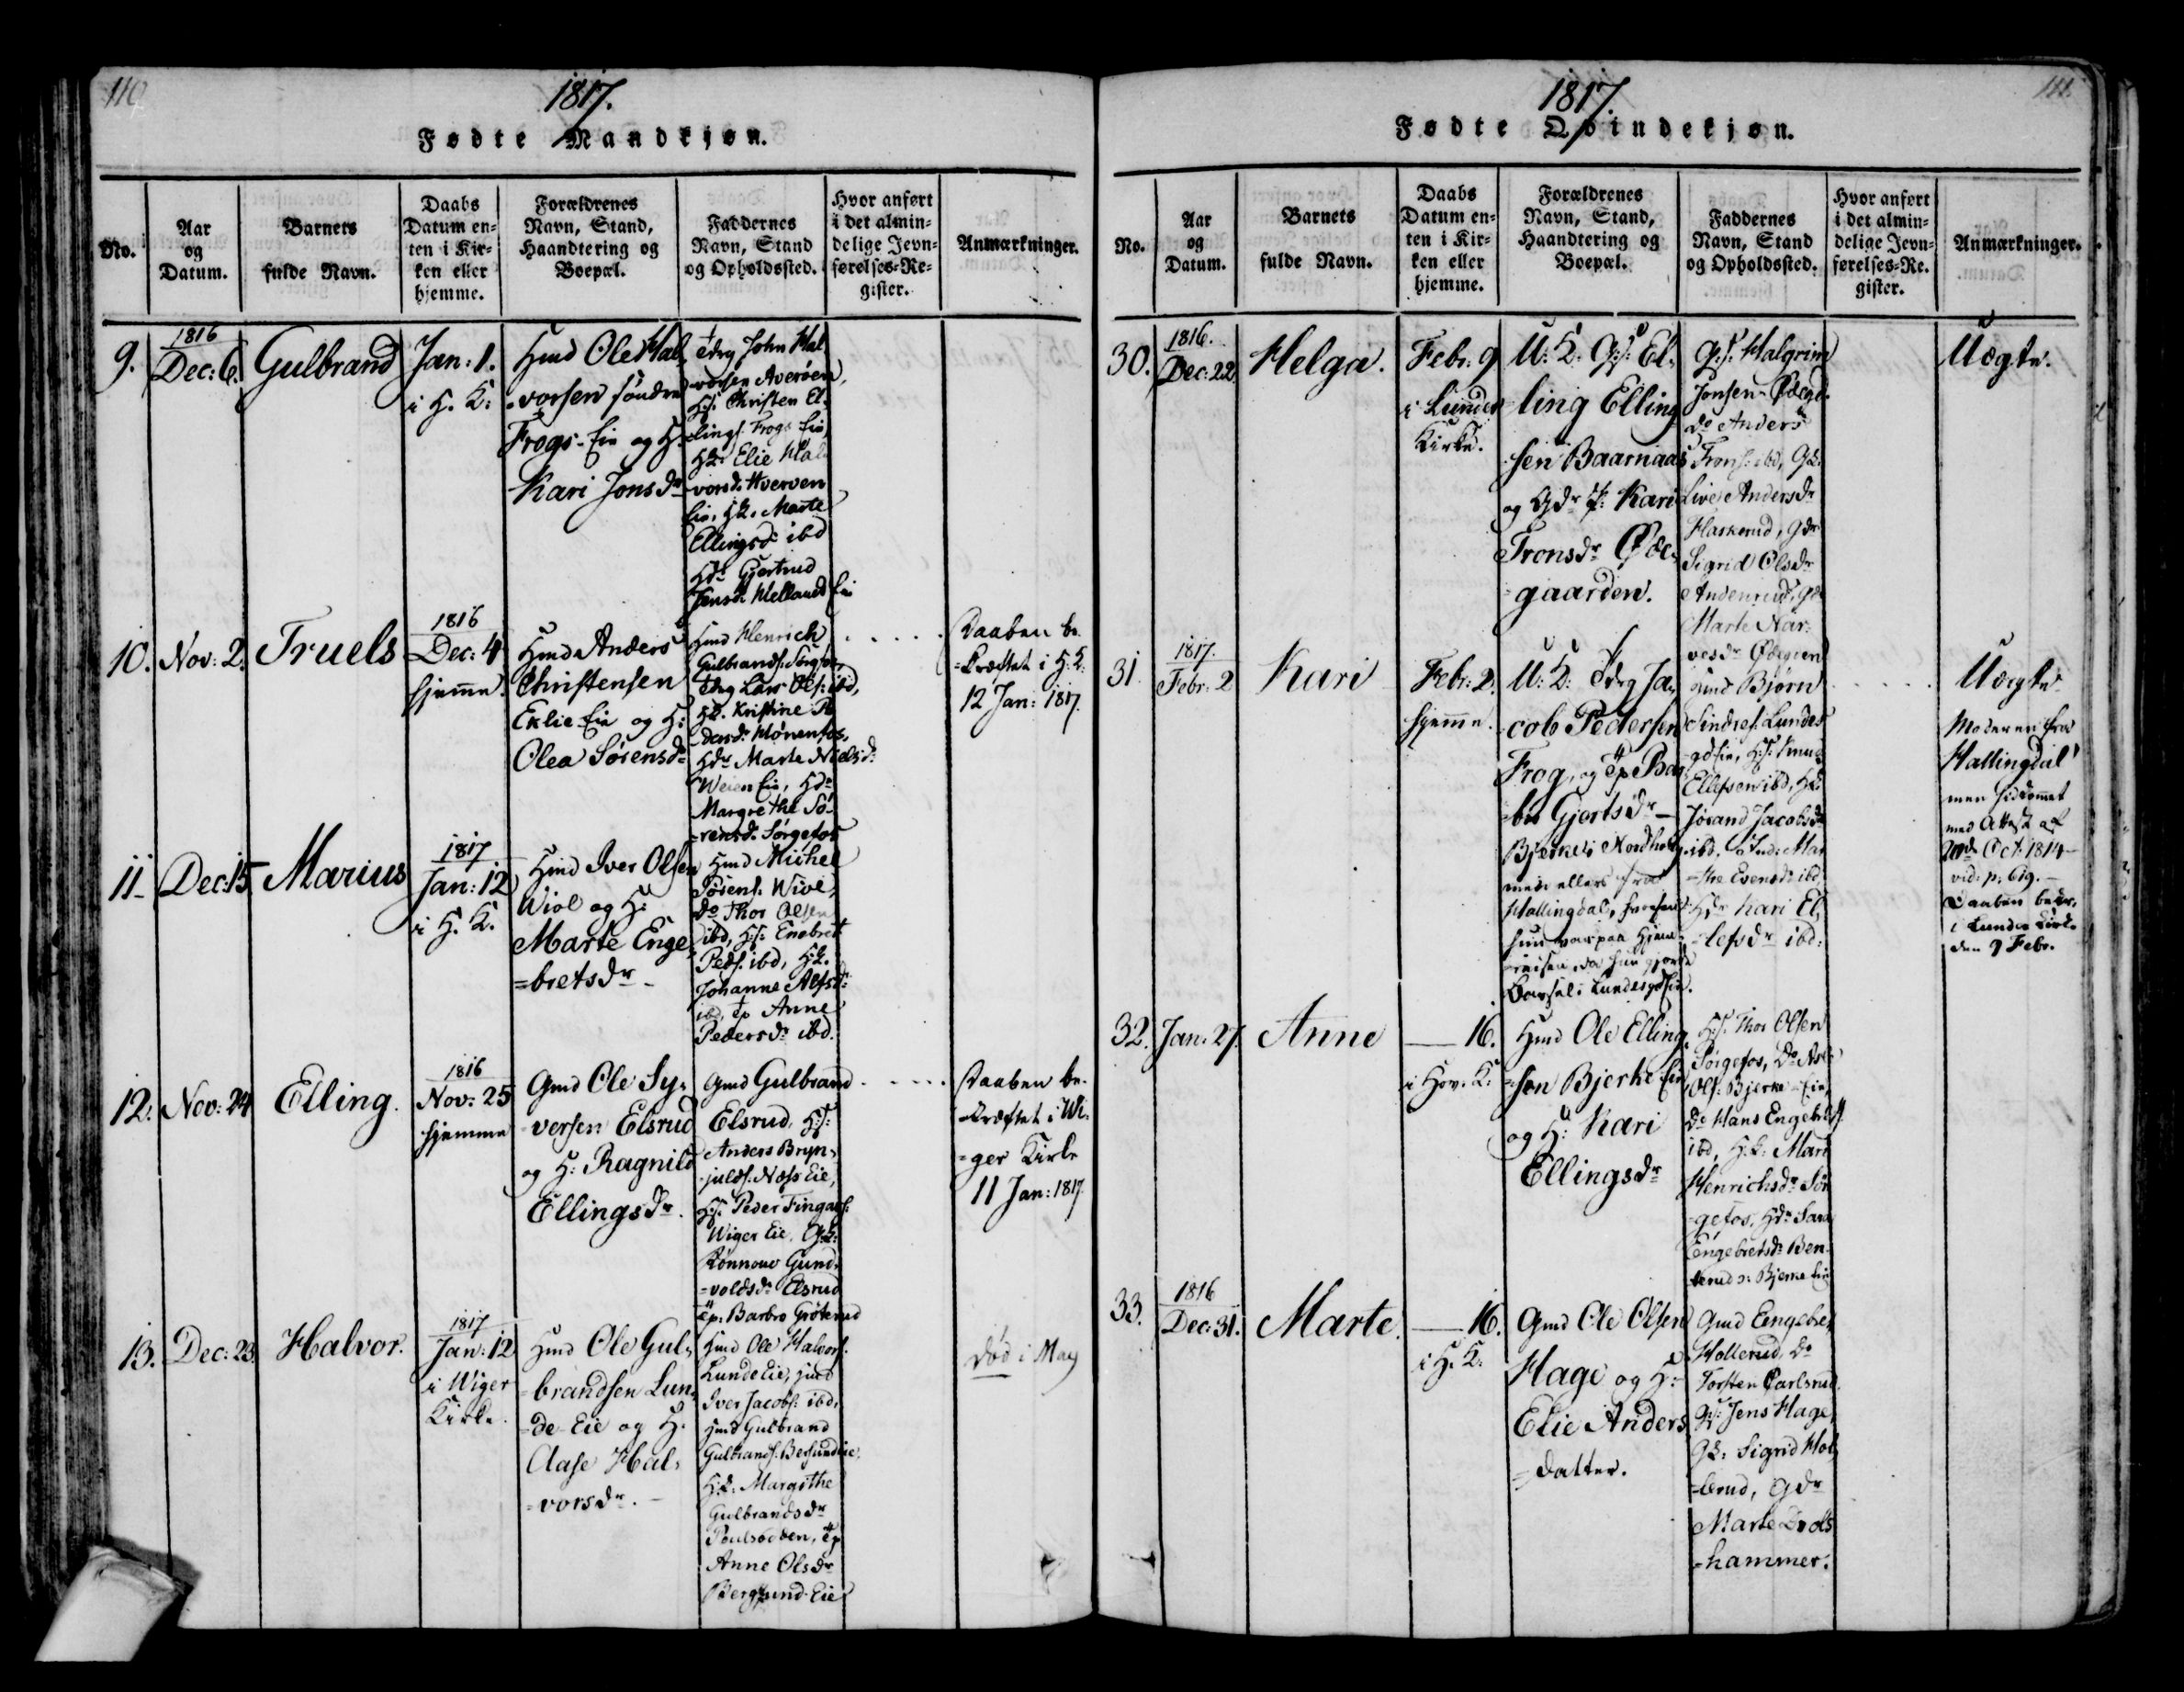 110
1817.
Fødte Mandkjøn.
No.
Aar
og
Datum.
Barnets
fulde Navn.
Daabs
Datum en-
ten i Kir-
ken eller
hjemme.
Forældrenes
Navn, Stand,
Haandtering og
Boepæl.
Faddernes
Navn, Stand
og Opholdssted.
Hvor anført
i det almin-
delige Jevn-
førelses-Re-
gister.
Anmærkninger.
9.
1816
Dec: 6.
Gulbrand
Jan: 1.
i H. K:
Hmd Ole Hal-
-vorsen søndre
Frogs-Eie og H:
Kari Jonsdr
John Hal
-vorsen Averøen,
H:s: Christen El-
-lings. Frogs Eie,
Elie Hal
-vorsd. Hverven
Eie, Marte
Ellingsdr ibd
Hdr Gjertrud
Jensdr Melland Eie
10.
Nov: 2.
Truels
1816
Dec: 4
hjemme.
Hmd Anders
Christensen
Eklie-Eie og H:
Olea Sørensdr
Hmd Henrich
Gulbrands. Sørgefos,
Lars Ols: ibd,
Kristine Pe
dersdr Hønenfos,
Hdr Marte Nielsdr
Weien Eie, Hdr
Margrethe Sø-
-rensdr Sørgefos
Daaben be-
-kræftet i H: K:
12 Jan: 1817.
11
Dec: 15
Marius
1817
Jan: 12
i H. K.
Hmd Iver Olsen
Wiol og H:
Marte Enge-
=bretsdr -
Hmd Michel
Sørens. Wiol,
do Thor Olsen
ibd, H:s: Enebret
Peds. ibd, H:K:
Johanne Alfsd:
ibd, Anne
Pedersdr ibd.
12.
Nov: 24
Elling.
1816
Nov: 25
hjemme
Gmd Ole Sy-
-versen Elsrud
og H: Ragnild
Ellingsdr.
Gmd Gulbrand
Elsrud, H:s:
Anders Bryn-
-julds. Næss Eie,
H:s: Peder Fingals:
Wiger Eie, G:K:
Rønnoug Gund-
=voldsdr Elsrud
Barbro Grøterud
Daaben be-
-kræftet i Wi-
=ger Kirke
11 Jan: 1817.
13.
Dec: 23.
Halvor.
1817
Jan: 12
i Wiger
Kirke.
Hmd Ole Gul-
=brandsen Lun-
=de-Eie og H:
Aase Hal-
=vorsdr. -
Hmd Ole Halvors.
Lunde Eie, hmd
Iver Jacobs: ibd,
Hmd Gulbrand
Gulbrands. Besund Eie,
H:K: Margithe
Gulbrandsdr
Poulsødden,
Anne Olsdr
Bergsund-Eie
Død i May
111.
1817.
Fødte Qvindekjøn.
No.
Aar
og
Datum.
Barnets
fulde Navn.
Daabs
Datum en-
ten i Kir-
ken eller
hjemme.
Forældrenes
Navn, Stand,
Haandtering og
Boepæl.
Faddernes
Navn, Stand
og Opholdssted.
Hvor anført
i det almin-
delige Jevn-
førelses-Re-
gister.
Anmærkninger.
30.
1816.
Dec: 22.
Helga.
Febr: 9
i Lunder
Kirke.
U: K: G:s: El-
=ling Elling-
sen Baarnaas
og Gdr Kari
Tronsdr Øde-
=gaarden.
G:s: Halgrim
Jonsen Ødegd.
do Anders
Trons: ibd, G:K:
Live Andersdr
Haskerud, Gdr
Sigrid Olsdr
Andenrud, Gdr
Marte Nar-
vesdr Ødegaard
Uægte.
31
1817.
Febr: 2
Kari
Febr: 2.
hjemme.
U: K: Ja-
cob Pedersen
Frog, og Bar-
bro Gjertsdr -
Bjerke i Nordhov-
med: ellers fra
Hallingdal, hvorhen
hun var paa Hjem-
-reisen, da hun gjorde
Barsel i Lundesgd Eie.
Gmd Bjørn
Sindres: Lundes
gd Eie, H:s: Knud
Ellefsen ibd, H:K:
Jørand Jacobsdr
ibd, Mar
=the Evensdr ibd
Hdr Kari El-
-lefsdr ibd:
Uægte
Moderen fra
Hallingdal
men hidkommet
med Attest af
Oct: 1814 -
vid: p: 619. -
Daaben bekr.
i Lunder Kirke
den 9 Febr.
32.
Jan: 27.
Anne
— 16.
i Hov. K:
Hmd Ole Elling-
=sen Bjerke Eie
og H: Kari
Ellingsdr
H:s: Thor Olsen
Sørgefos, Do
Ols: Bjerke-Eie,
Do Hans Engebrets.
ibd, H:K: Mari
Henrichsdr Sør-
-gefos, Hdr Sara
Engebretsdr Ben-
terud Bjerke Eie
33.
1816
Dec: 31.
Marte.
— 16.
i H. K:
Gmd Ole Olsen
Hage og H:
Elie Anders
=datter.
Gmd Engebret
Hollerud, Do
Torsten Carlsrud
G:s: Jens Hage,
G:K: Sigrid Hol-
-lerud, Gdr
Marte Trols
=hammer.